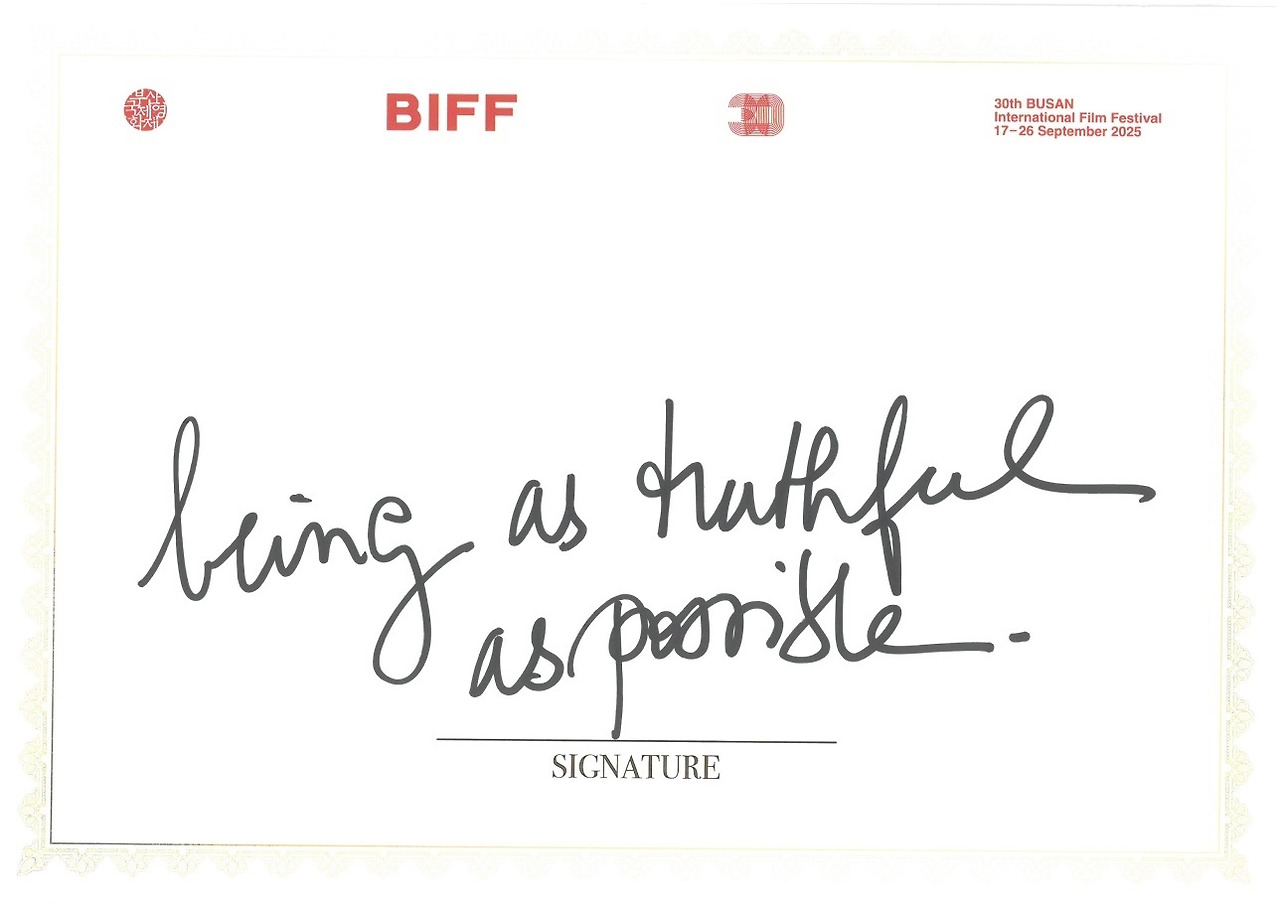 부산
국제영
화제
BIFF
30
30th BUSAN
International Film Festival
17–26 September 2025
being as truthful
as possible.
SIGNATURE